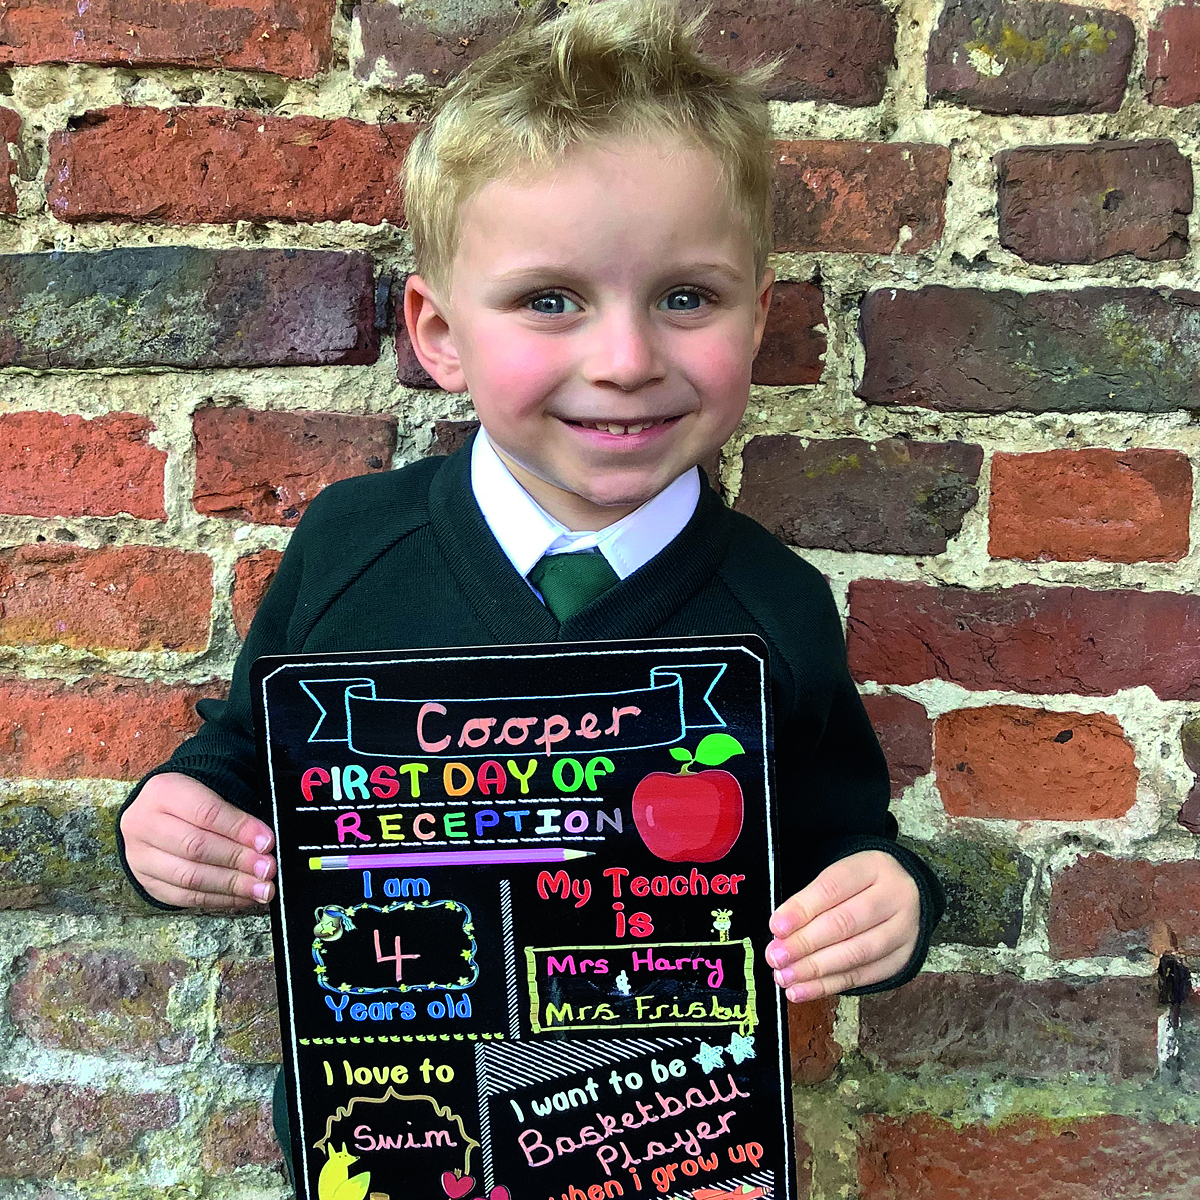 Cooper
FIRST DAY OF
RECEPTION
I am
4
Years old
My Teacher
is
Mrs Harry
&
Mrs Frisby
I love to
Swim
I want to be
Basketball
Player
when i grow up